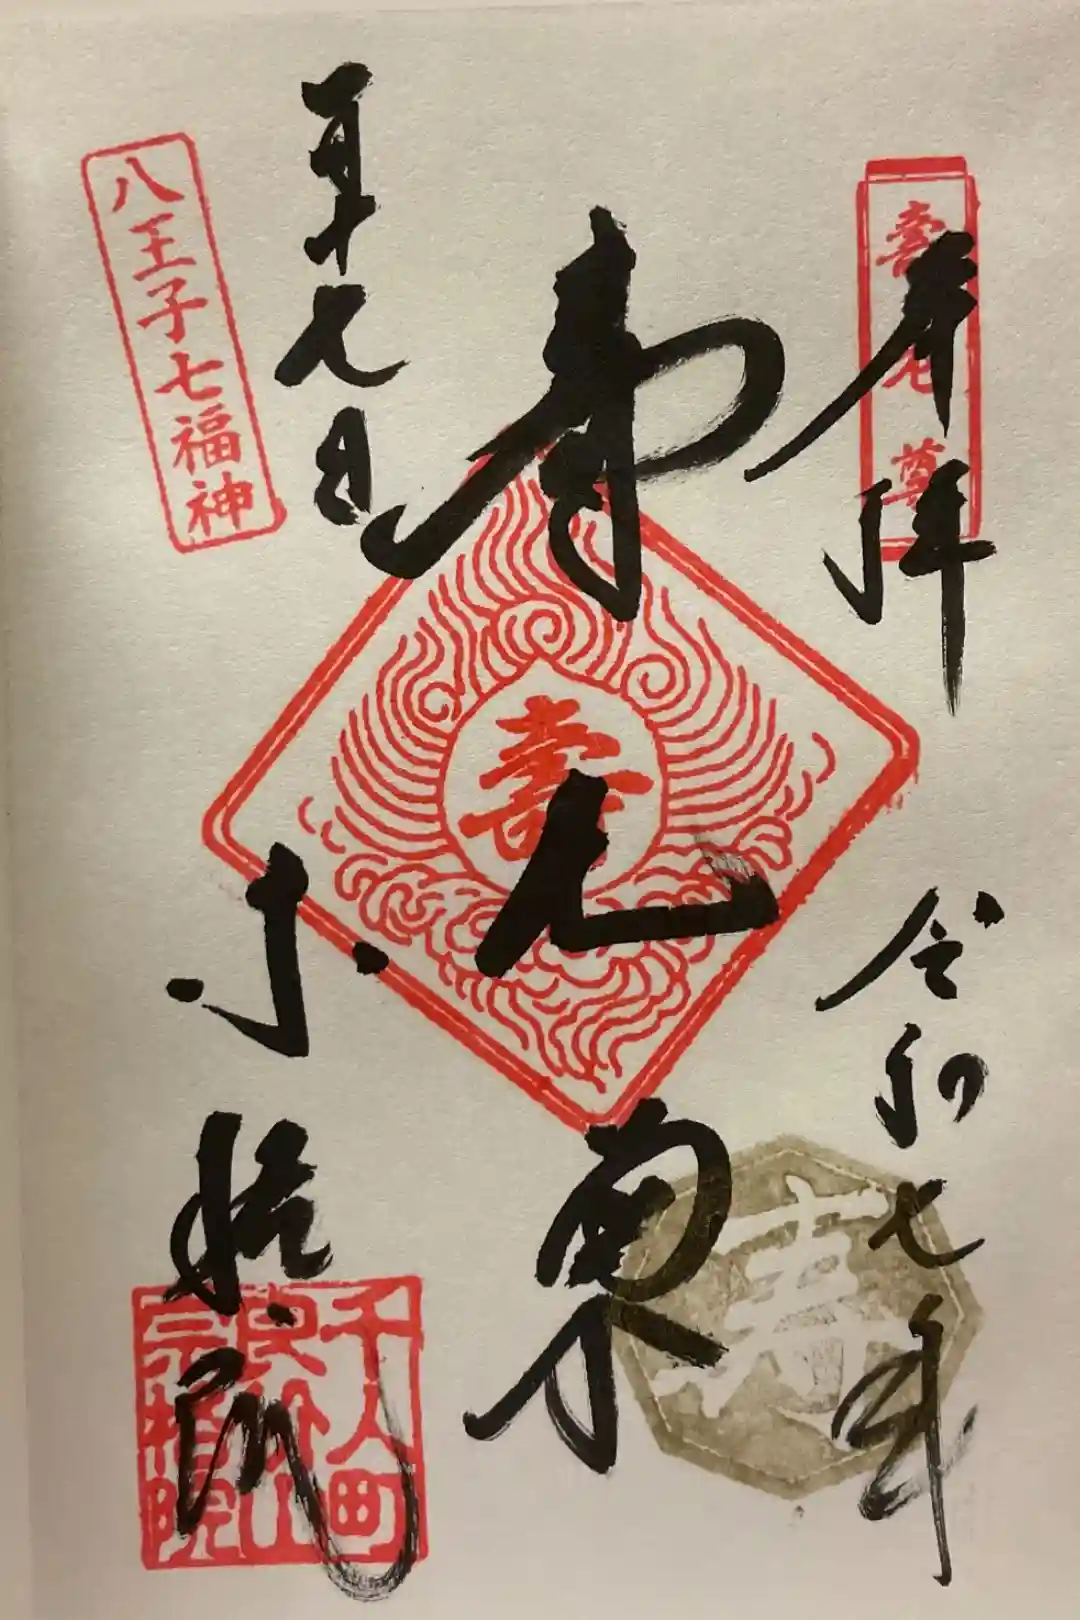 壽老尊
奉拝
令和七年
寿老尊
壽
寿
一月十七日
宗格院
八王子七福神
千人町
良价山
宗格院